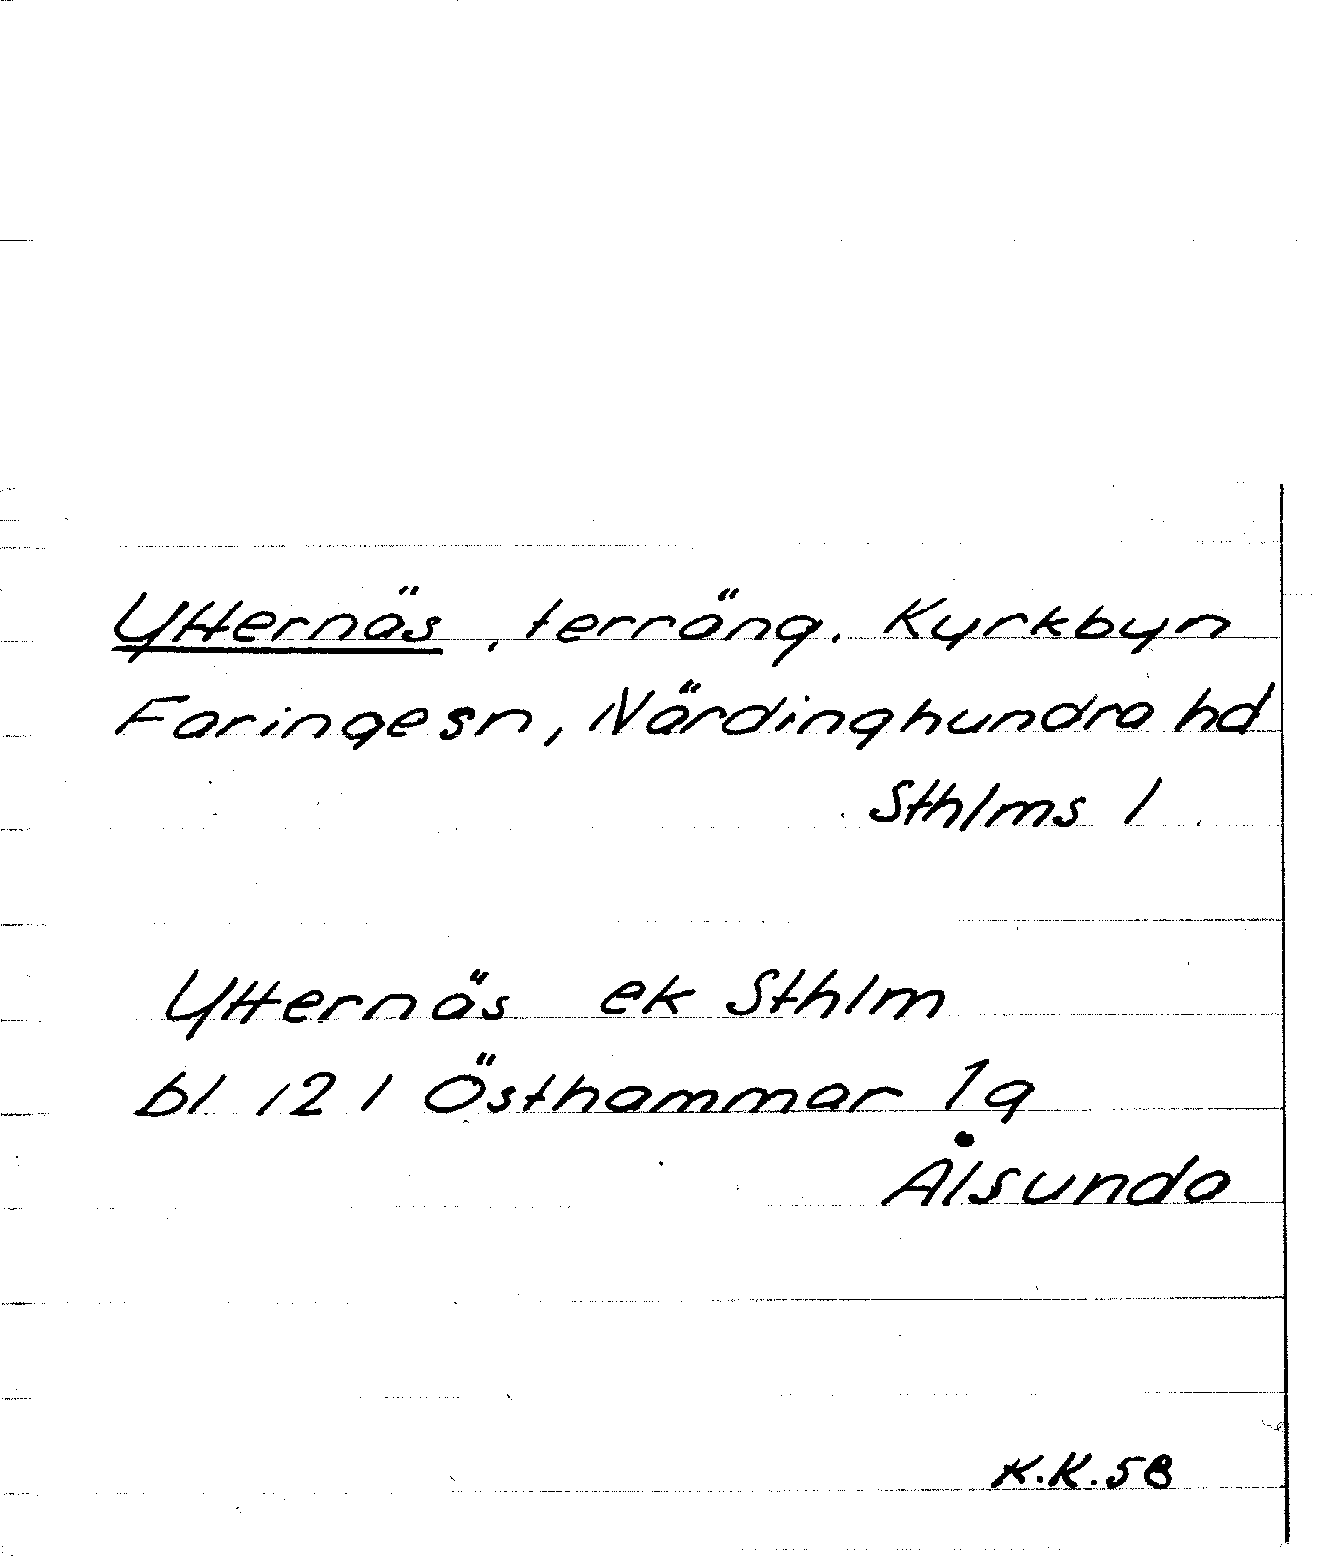 Ytternäs, terräng. Kyrkbyn
Faringe sn, Närdinghundra hd
Sthlms l
Ytternäs ek Sthlm
bl 121 Östhammar 1g
Ålsunda
K.K.58